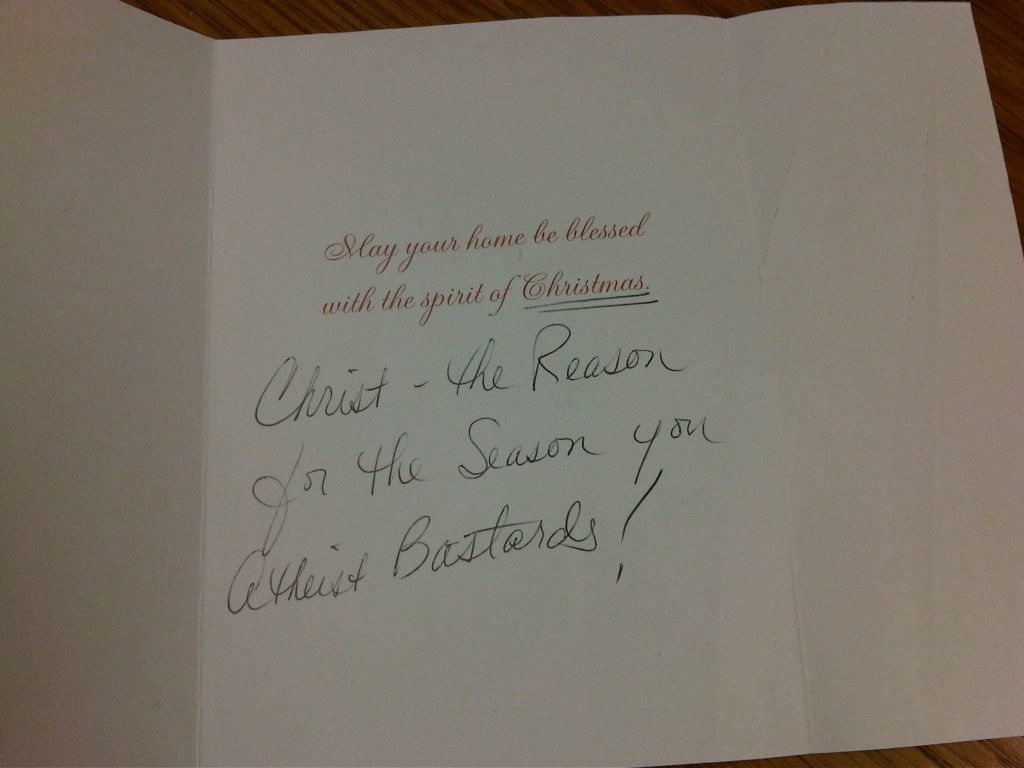 May your home be blessed
with the spirit of Christmas.
Christ - the Reason
for the Season you
Atheist Bastards!